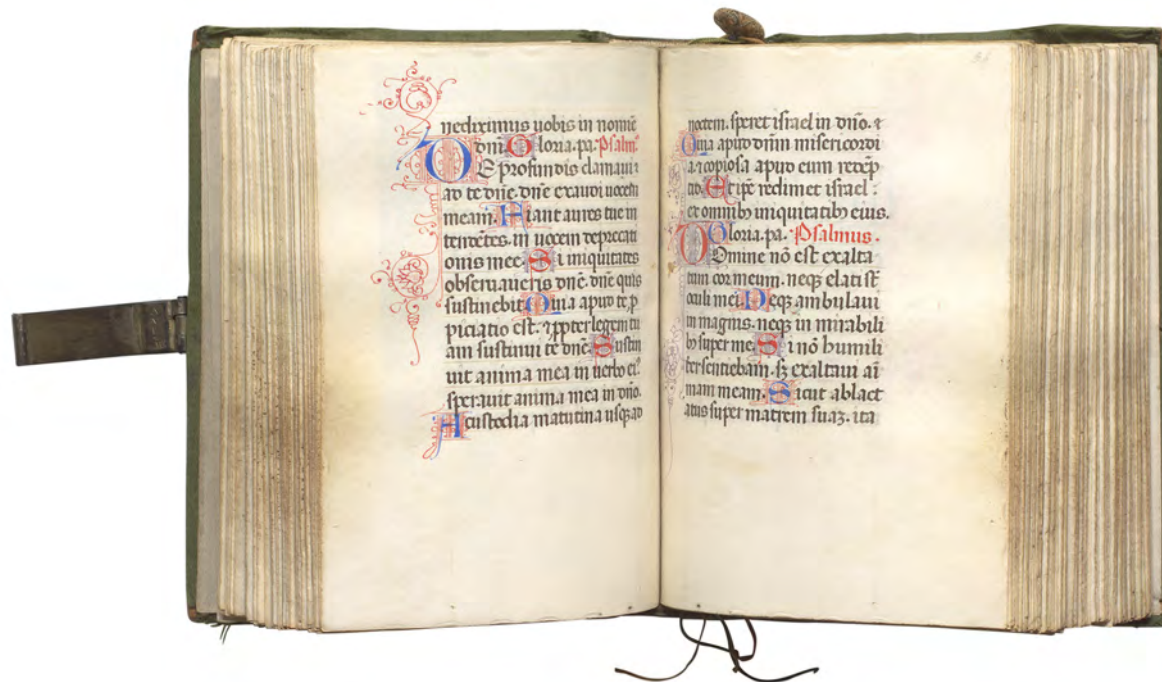 nediximus uobis in nomie
dni. Gloria. pa. Psalm9
De profundis clamaui
ad te dne. dne exaudi uocem
meam. Fiant aures tue in
tendetes. in uocem deprecati
onis mee. Si iniquitates
obseruaueris dne. dne quis
sustinebit. Quia apud te, p
piciatio est. ⁊ ppter legem tu
am sustinui te dne. Sustin
uit anima mea in uerbo ei9
sperauit anima mea in dno.
A custodia matutina usqꝫ ad
noctem. speret israel in dno. ⁊
Quia apud dnm misericordi
a. ⁊ copiosa apud eum redep
tio. Et ipe redimet israel.
ex omnibꝫ iniquitatibꝫ eius.
Gloria. pa. Psalmus.
Domine nō est exalta
tum cor meum. neqꝫ elati st̄
oculi mei. Neqꝫ ambulaui
in magnis. neqꝫ in mirabili
bꝫ super me. Si nō humili
ter sentiebam. sꝫ exaltaui ai
mam meam. Sicut ablact
atus super matrem suaꝫ. ita